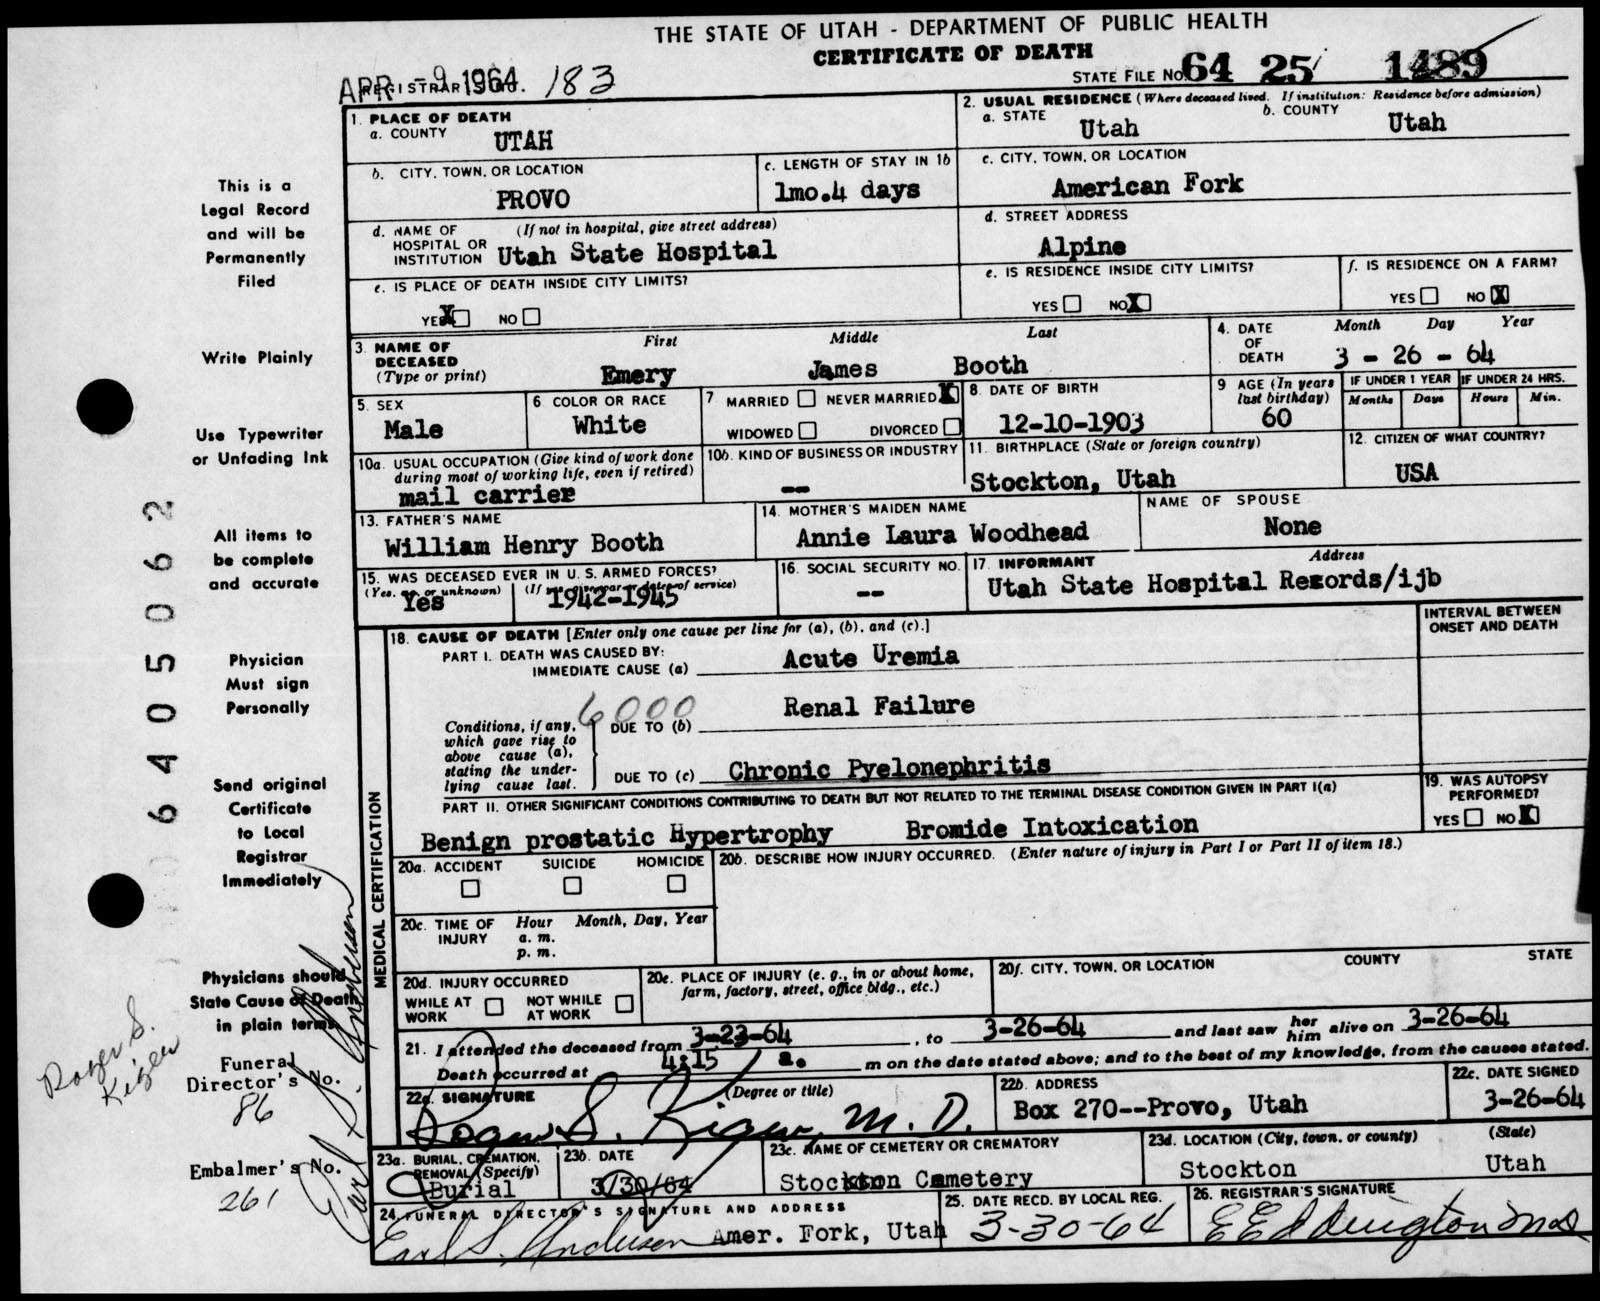 THE STATE OF UTAH - DEPARTMENT OF PUBLIC HEALTH
CERTIFICATE OF DEATH
APR -9 1964
REGISTRAR'S NO. 183
STATE FILE NO. 64 25 1489
This is a
Legal Record
and will be
Permanently
Filed
Write Plainly
Use Typewriter
or Unfading Ink
All items to
be complete
and accurate
Physician
Must sign
Personally
Send original
Certificate
to Local
Registrar
Immediately
Physicians should
State Cause of Death
in plain terms
Funeral
Director's No.
86
Embalmer's No.
261
Roger S.
Kiger
Earl S. Anderson
6405062
1. PLACE OF DEATH
a. COUNTY UTAH
2. USUAL RESIDENCE (Where deceased lived. If institution: Residence before admission)
a. STATE Utah
b. COUNTY Utah
b. CITY, TOWN, OR LOCATION PROVO
c. LENGTH OF STAY IN 1b 1mo.4 days
c. CITY, TOWN, OR LOCATION
American Fork
d. NAME OF HOSPITAL OR INSTITUTION (If not in hospital, give street address)
Utah State Hospital
d. STREET ADDRESS
Alpine
e. IS PLACE OF DEATH INSIDE CITY LIMITS?
YES X NO
e. IS RESIDENCE INSIDE CITY LIMITS?
YES NO X
f. IS RESIDENCE ON A FARM?
YES NO X
3. NAME OF DECEASED (Type or print)
First Middle Last
Emery James Booth
4. DATE OF DEATH
Month Day Year
3 - 26 - 64
5. SEX
Male
6. COLOR OR RACE
White
7 MARRIED NEVER MARRIED X
WIDOWED DIVORCED
8. DATE OF BIRTH
12-10-1903
9 AGE (In years last birthday)
60
IF UNDER 1 YEAR
Months Days
IF UNDER 24 HRS.
Hours Min.
10a. USUAL OCCUPATION (Give kind of work done during most of working life, even if retired)
mail carrier
10b. KIND OF BUSINESS OR INDUSTRY
--
11. BIRTHPLACE (State or foreign country)
Stockton, Utah
12. CITIZEN OF WHAT COUNTRY?
USA
13. FATHER'S NAME
William Henry Booth
14. MOTHER'S MAIDEN NAME
Annie Laura Woodhead
NAME OF SPOUSE
None
15. WAS DECEASED EVER IN U. S. ARMED FORCES?
(Yes, no, or unknown) (If yes, give war or dates of service)
Yes 1942-1945
16. SOCIAL SECURITY NO.
--
17. INFORMANT Address
Utah State Hospital Records/ijb
MEDICAL CERTIFICATION
18. CAUSE OF DEATH [Enter only one cause per line for (a), (b), and (c).]
INTERVAL BETWEEN ONSET AND DEATH
PART I. DEATH WAS CAUSED BY:
IMMEDIATE CAUSE (a) Acute Uremia
6000
Conditions, if any, which gave rise to above cause (a), stating the underlying cause last.
DUE TO (b) Renal Failure
DUE TO (c) Chronic Pyelonephritis
PART II. OTHER SIGNIFICANT CONDITIONS CONTRIBUTING TO DEATH BUT NOT RELATED TO THE TERMINAL DISEASE CONDITION GIVEN IN PART I(a)
Benign prostatic Hypertrophy Bromide Intoxication
19. WAS AUTOPSY PERFORMED?
YES NO X
20a. ACCIDENT SUICIDE HOMICIDE
20b. DESCRIBE HOW INJURY OCCURRED. (Enter nature of injury in Part I or Part II of item 18.)
20c. TIME OF INJURY
Hour Month, Day, Year
a. m.
p. m.
20d. INJURY OCCURRED
WHILE AT WORK NOT WHILE AT WORK
20e. PLACE OF INJURY (e. g., in or about home, farm, factory, street, office bldg., etc.)
20f. CITY, TOWN, OR LOCATION COUNTY STATE
21. I attended the deceased from 3-23-64, to 3-26-64 and last saw her him alive on 3-26-64
Death occurred at 4:15 a. m on the date stated above; and to the best of my knowledge, from the causes stated.
22a. SIGNATURE (Degree or title)
Roger S. Kiger, M. D.
22b. ADDRESS
Box 270--Provo, Utah
22c. DATE SIGNED
3-26-64
23a. BURIAL, CREMATION, REMOVAL (Specify)
Burial
23b. DATE
3/30/64
23c. NAME OF CEMETERY OR CREMATORY
Stockton Cemetery
23d. LOCATION (City, town, or county) (State)
Stockton Utah
24. FUNERAL DIRECTOR'S SIGNATURE AND ADDRESS
Earl S. Anderson Amer. Fork, Utah
25. DATE RECD. BY LOCAL REG.
3-30-64
26. REGISTRAR'S SIGNATURE